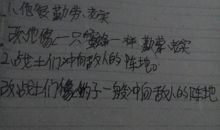 1、他很勤劳、老实
改他像一只一样勤劳老实
2、战士们冲向敌人的阵地。
改战士们像豹子一般冲向敌人的阵地